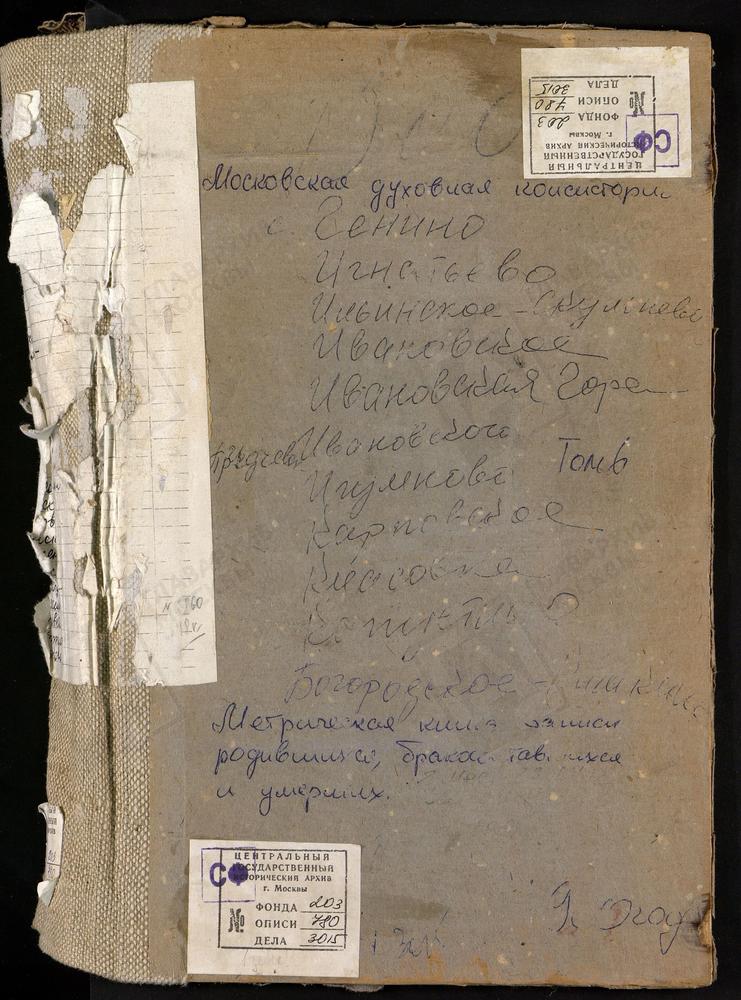 ЦЕНТРАЛЬНЫЙ
ГОСУДАРСТВЕННЫЙ
ИСТОРИЧЕСКИЙ АРХИВ
г. Москвы
СФ
№
ФОНДА 203
ОПИСИ 780
ДЕЛА 3015
Московская духовная консистория
с. Генино
Игнатьево
Ильинское-
Ивановское
Ивановская Гора
Предтечево Ивановского
Томъ
Игумново
Карповское
Киасовка
Богородское-
Метрическая книга записи
родившихся, бракосочетавшихся
и умерших.
ЦЕНТРАЛЬНЫЙ
ГОСУДАРСТВЕННЫЙ
ИСТОРИЧЕСКИЙ АРХИВ
г. Москвы
СФ
№
ФОНДА 203
ОПИСИ 780
ДЕЛА 3015